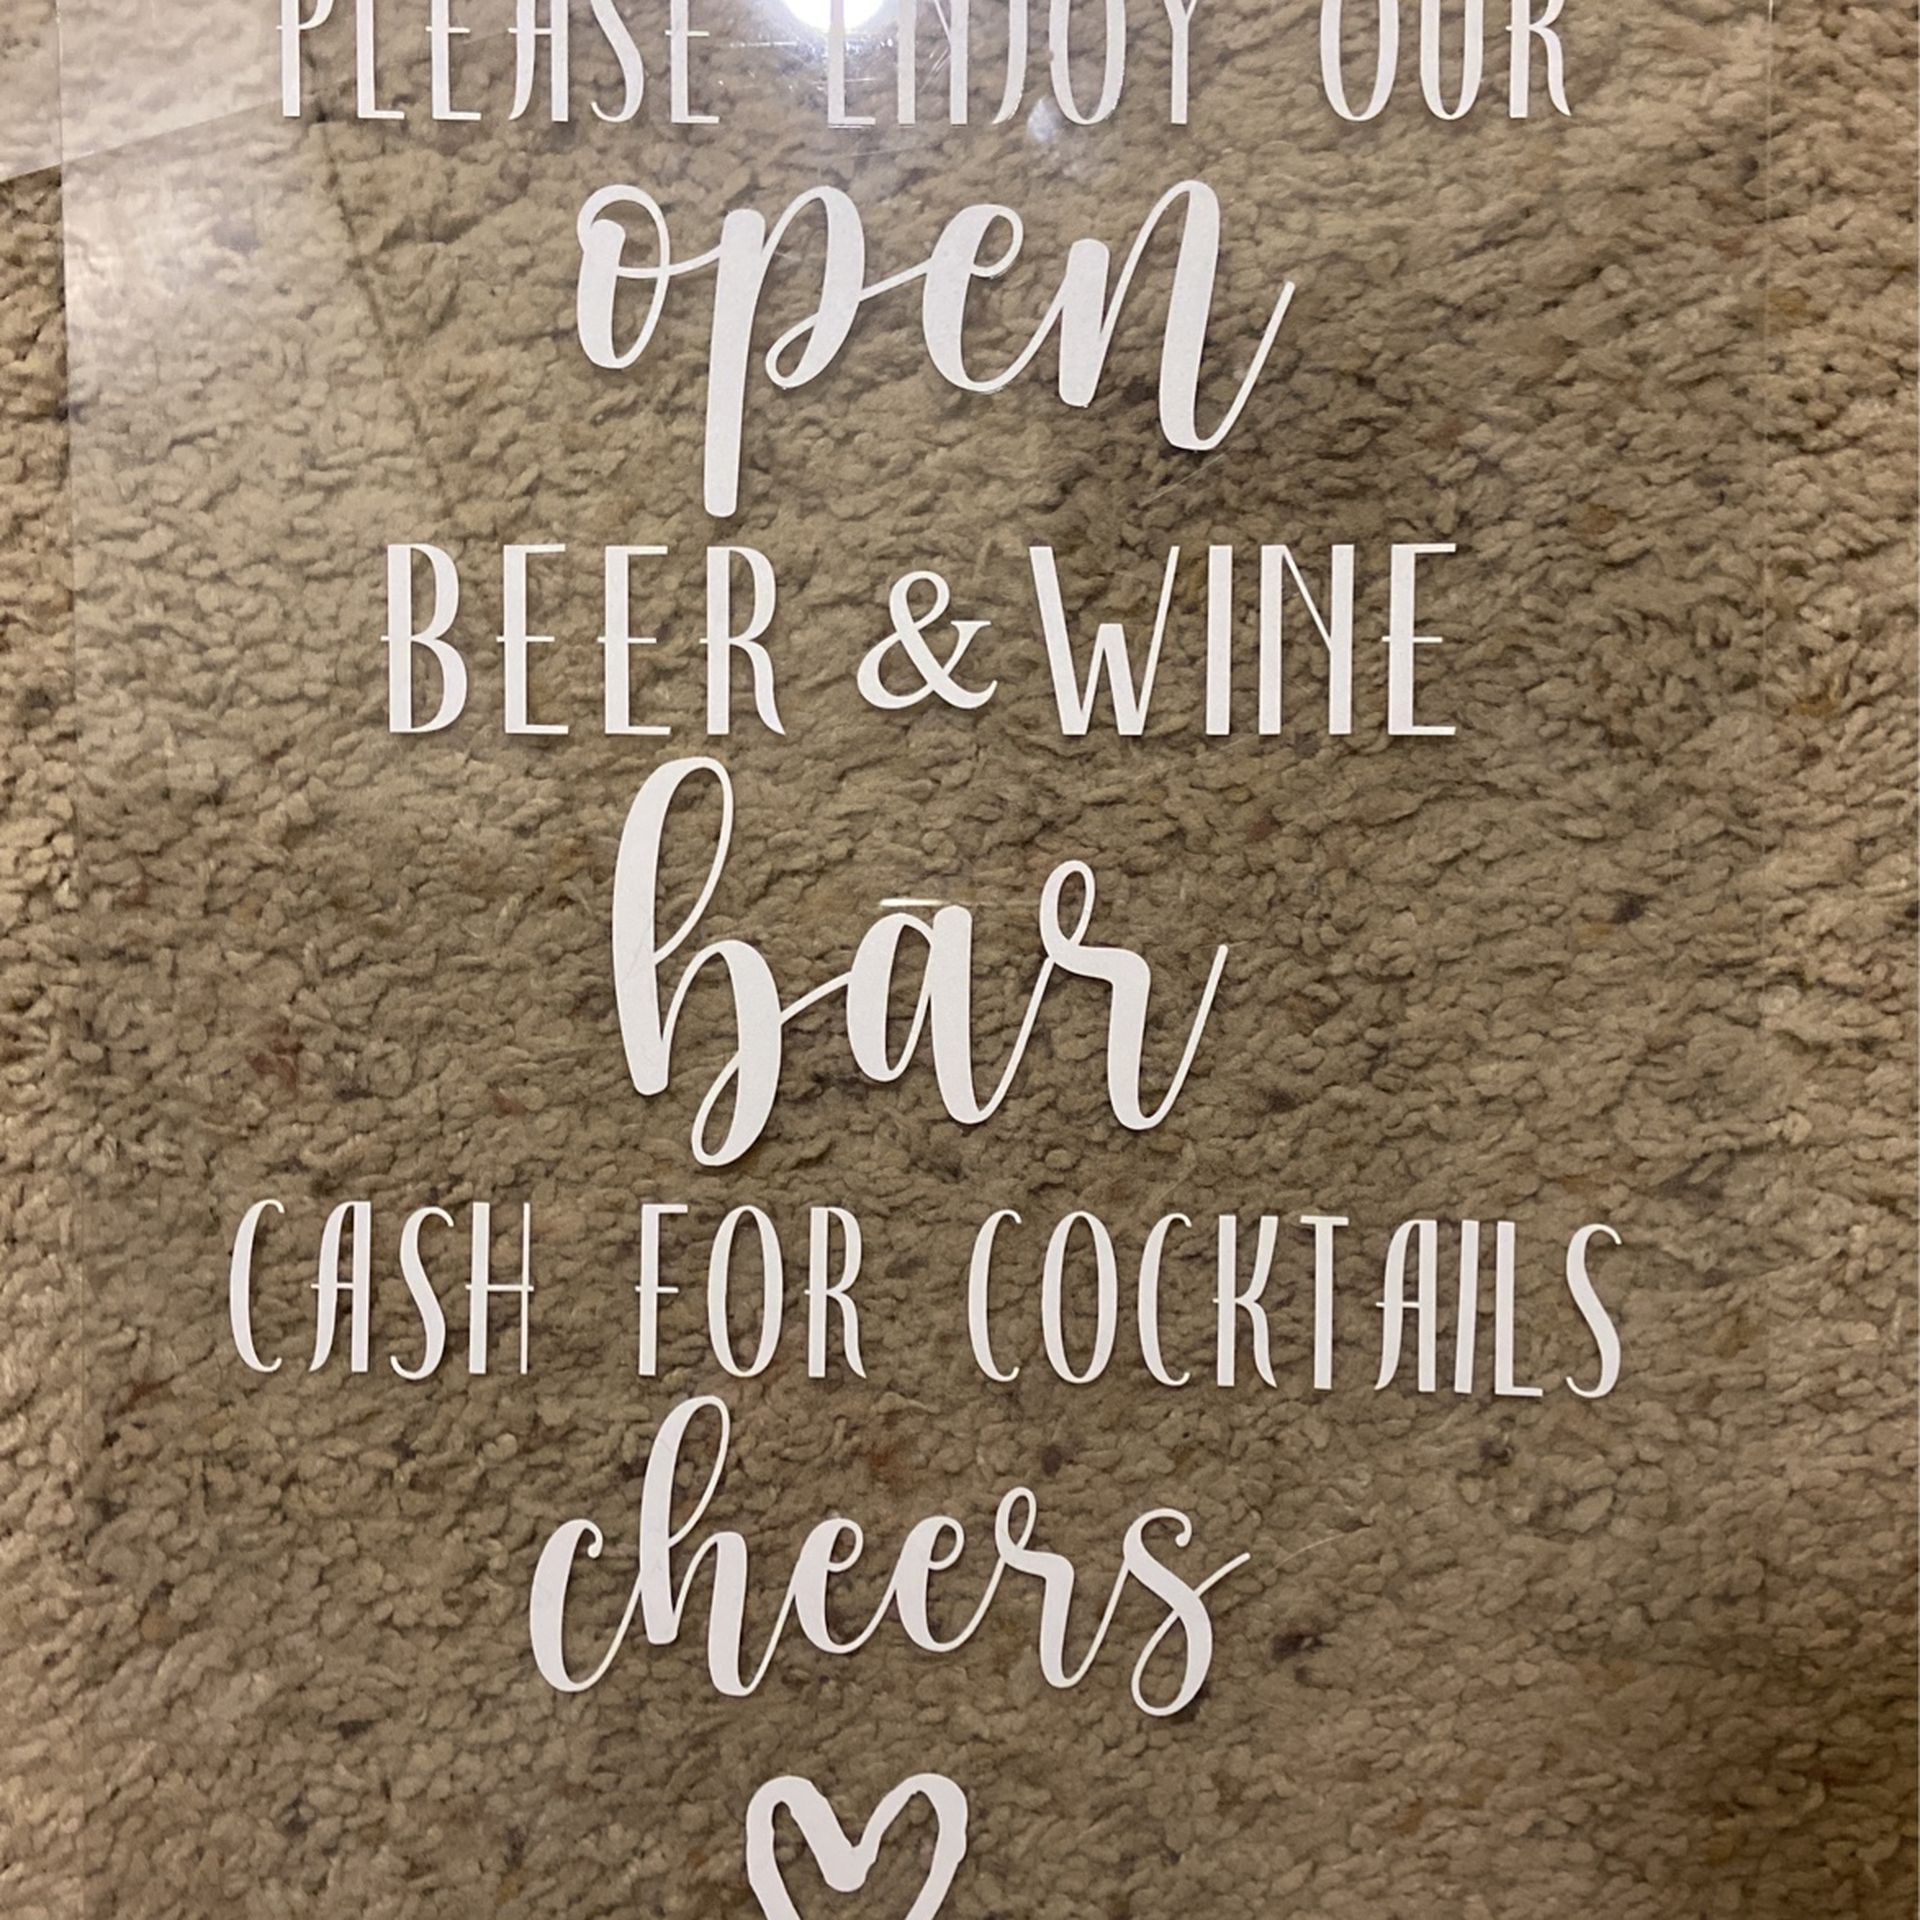 PLEASE ENJOY OUR
open
BEER & WINE
bar
CASH FOR COCKTAILS
cheers